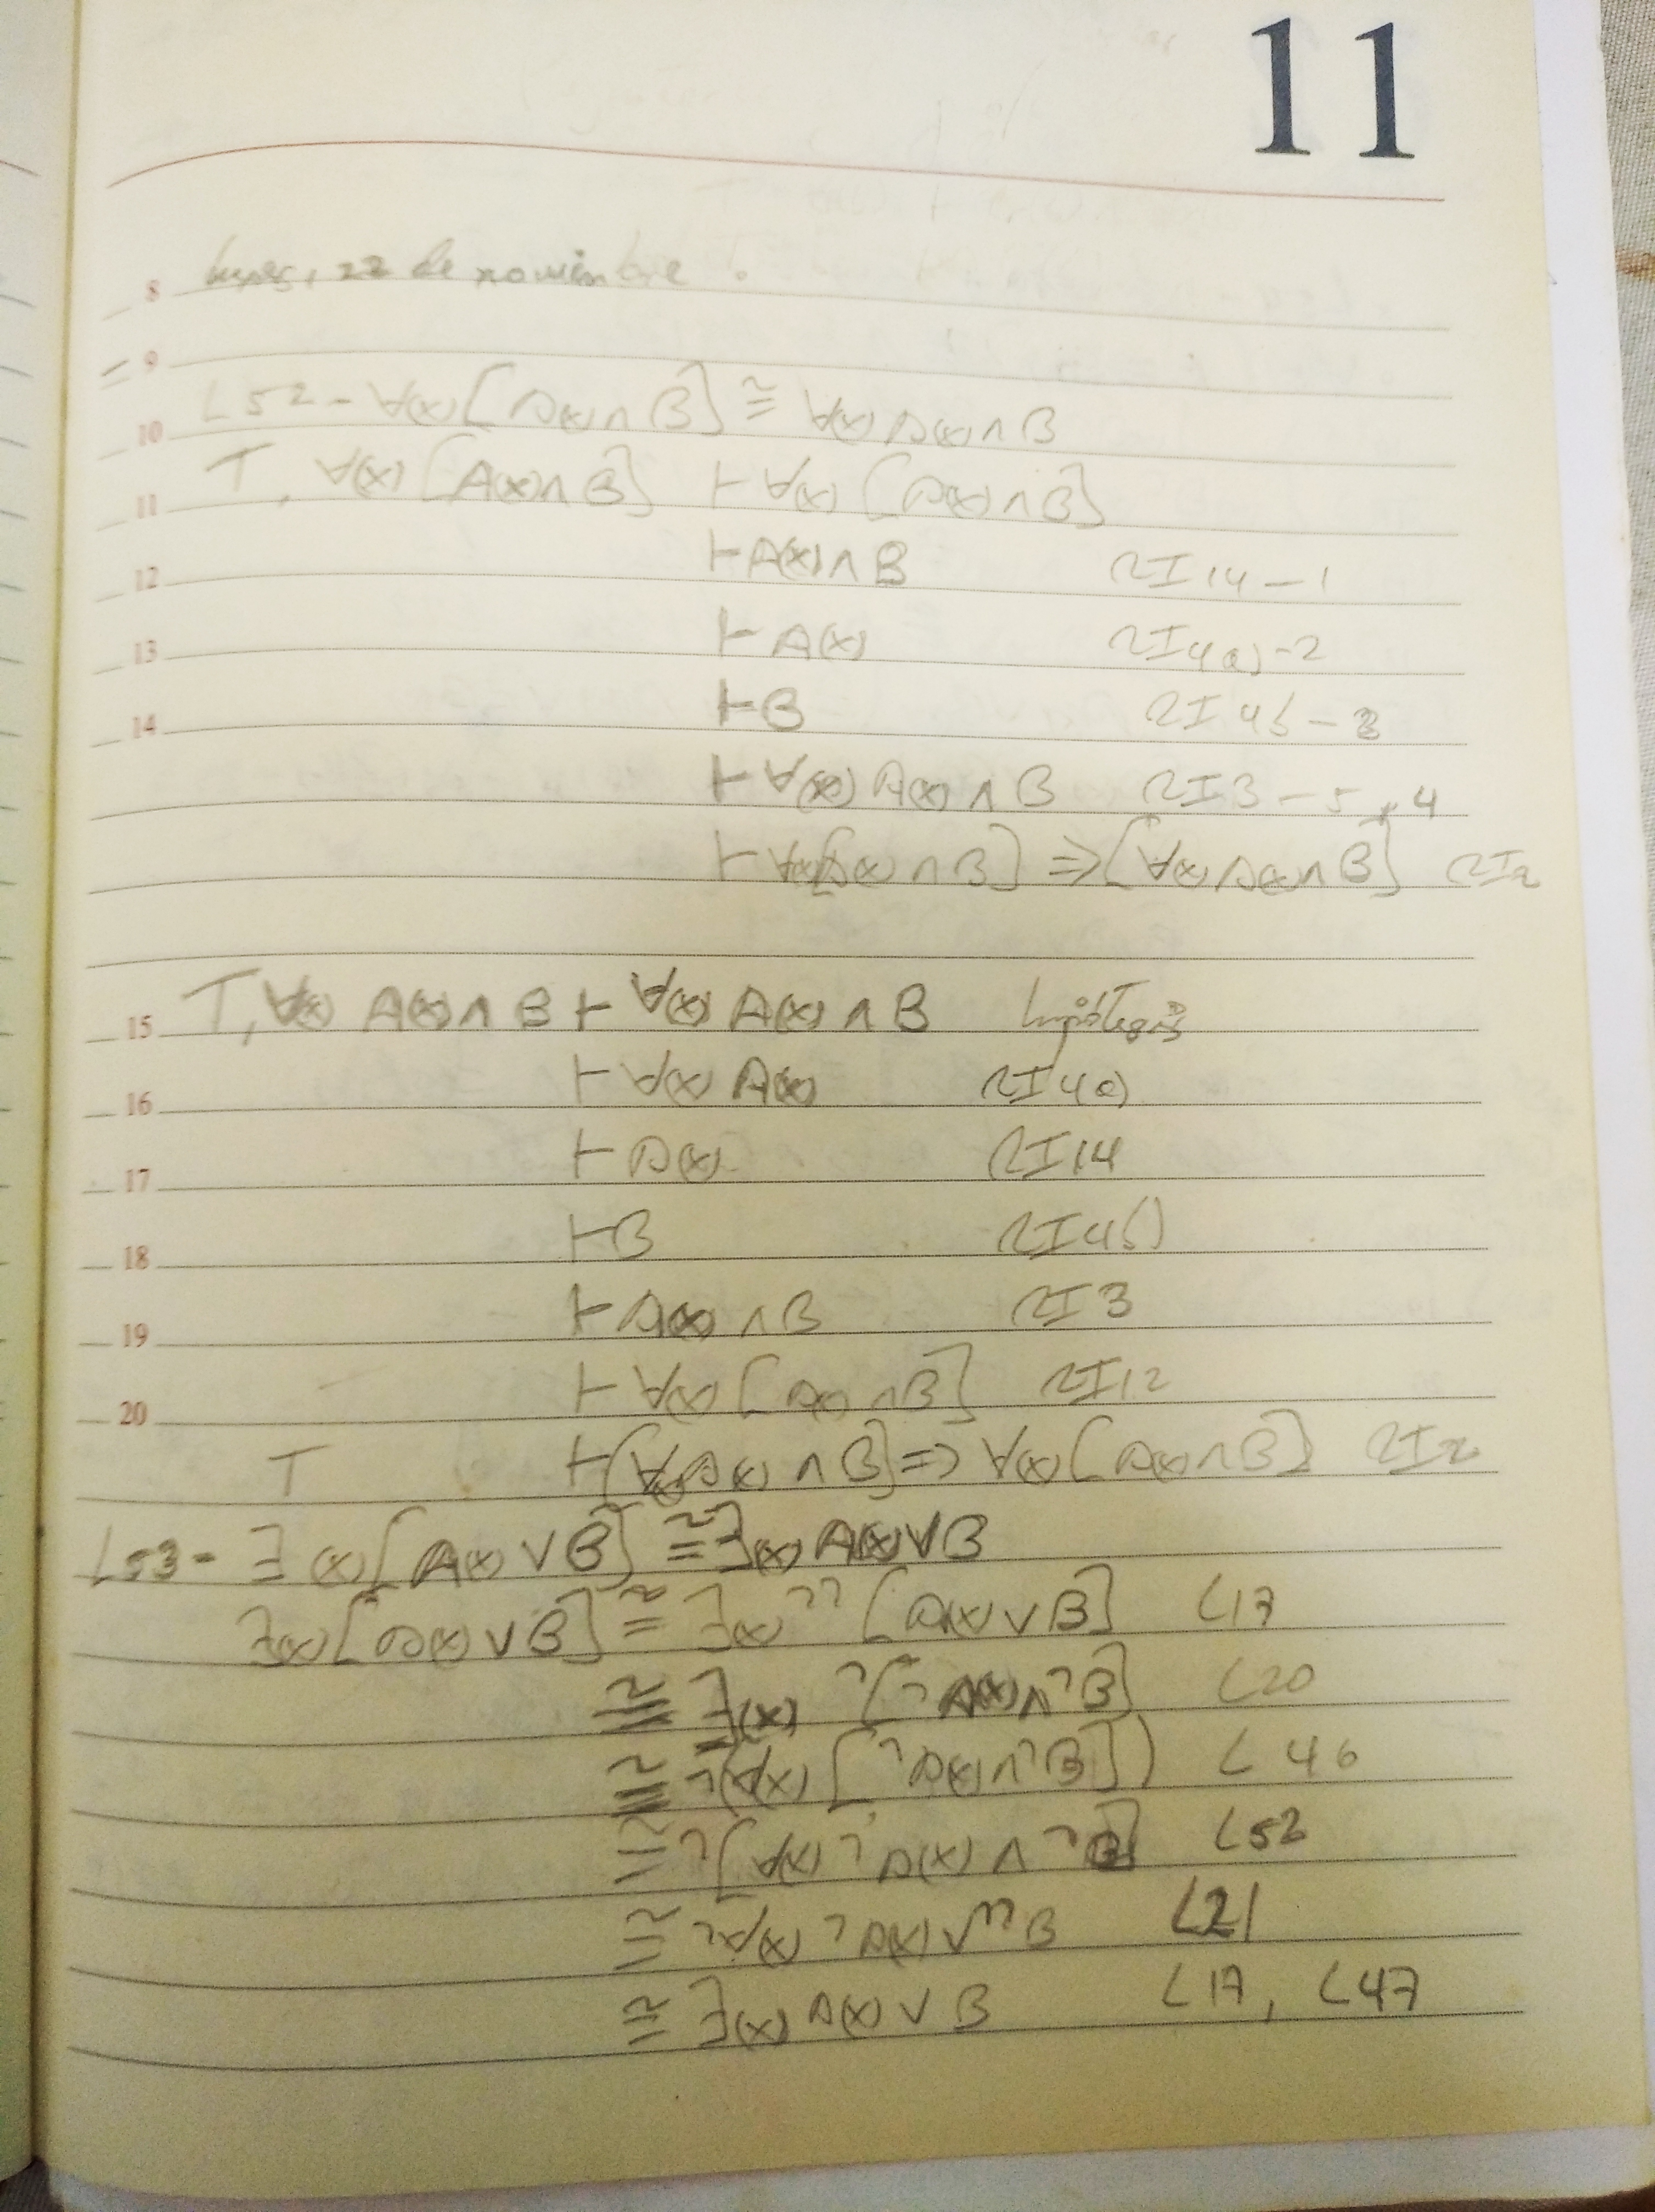 11
8 lunes, 22 de noviembre.
9
10 L52- ∀(x)[A(x)∧B] ≅ ∀(x)A(x)∧B
11 T, ∀(x)[A(x)∧B] ⊢ ∀(x)[A(x)∧B]
12 ⊢A(x)∧B RI14-1
13 ⊢A(x) RI4a)-2
14 ⊢B RI4b-3
⊢∀(x)A(x)∧B RI3-5,4
⊢∀(x)[A(x)∧B] ⇒ [∀(x)A(x)∧B] RI2
15 T, ∀(x) A(x)∧B ⊢ ∀(x) A(x)∧B hipótesis
16 ⊢∀(x) A(x) RI4a)
17 ⊢A(x) RI14
18 ⊢B RI4b)
19 ⊢A(x)∧B RI3
20 ⊢∀(x)[A(x)∧B] RI12
T ⊢[∀(x)A(x)∧B] ⇒ ∀(x)[A(x)∧B] RI2
L53- ∃(x)[A(x)∨B] ≅ ∃(x)A(x)∨B
∃(x)[A(x)∨B] ≅ ∃(x)¬¬[A(x)∨B] L17
≅ ∃(x)¬[¬A(x)∧¬B] L20
≅ ¬(∀(x)[¬A(x)∧¬B]) L46
≅ ¬[∀(x)¬A(x)∧¬B] L52
≅ ¬∀(x)¬A(x)∨¬¬B L21
≅ ∃(x)A(x)∨B L17, L47